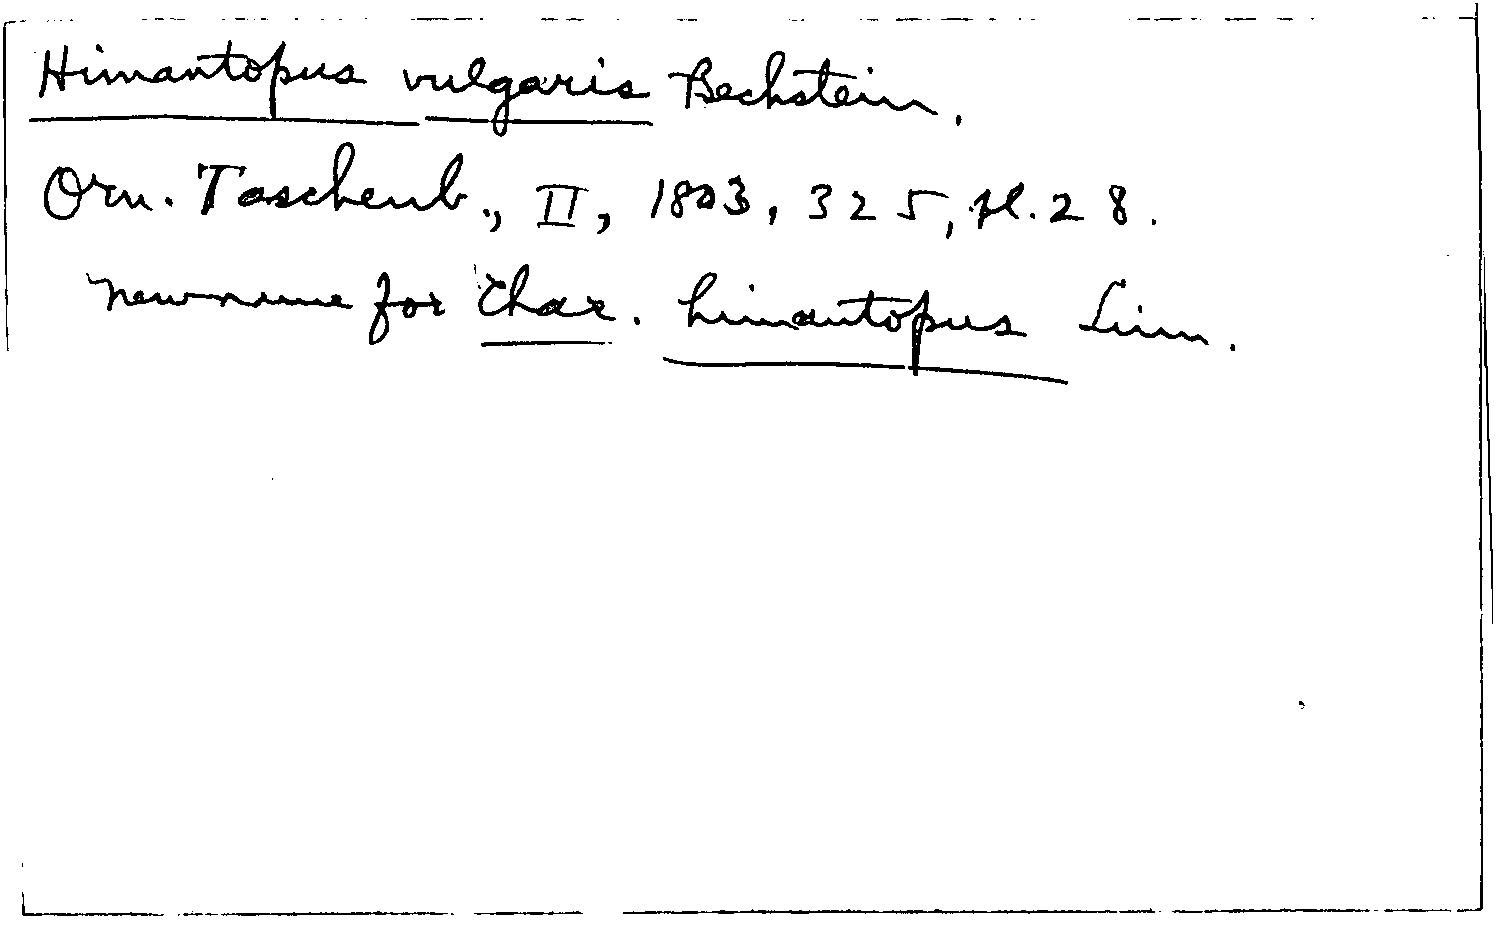 Himantopus vulgaris Bechstein.
Orn. Taschenb., II, 1803, 325, pl. 28.
new name for Char. himantopus Linn.